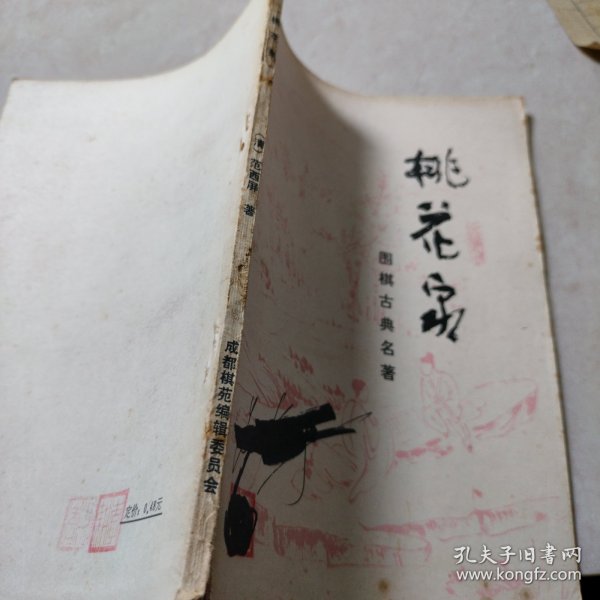 桃花泉
围棋古典名著
(清) 范西屏 著
成都棋苑编辑委员会
定价：0.68元
孔夫子旧书网
www.kongfz.com